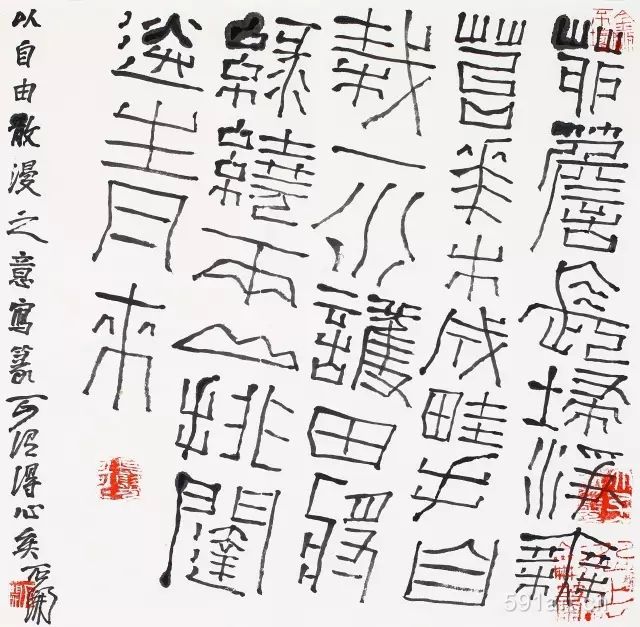 茅簷長掃淨無
苔花木成畦手自
栽一水護田將
綠繞兩山排闥
送青來
以自由散漫之意寫篆可謂得心矣石開